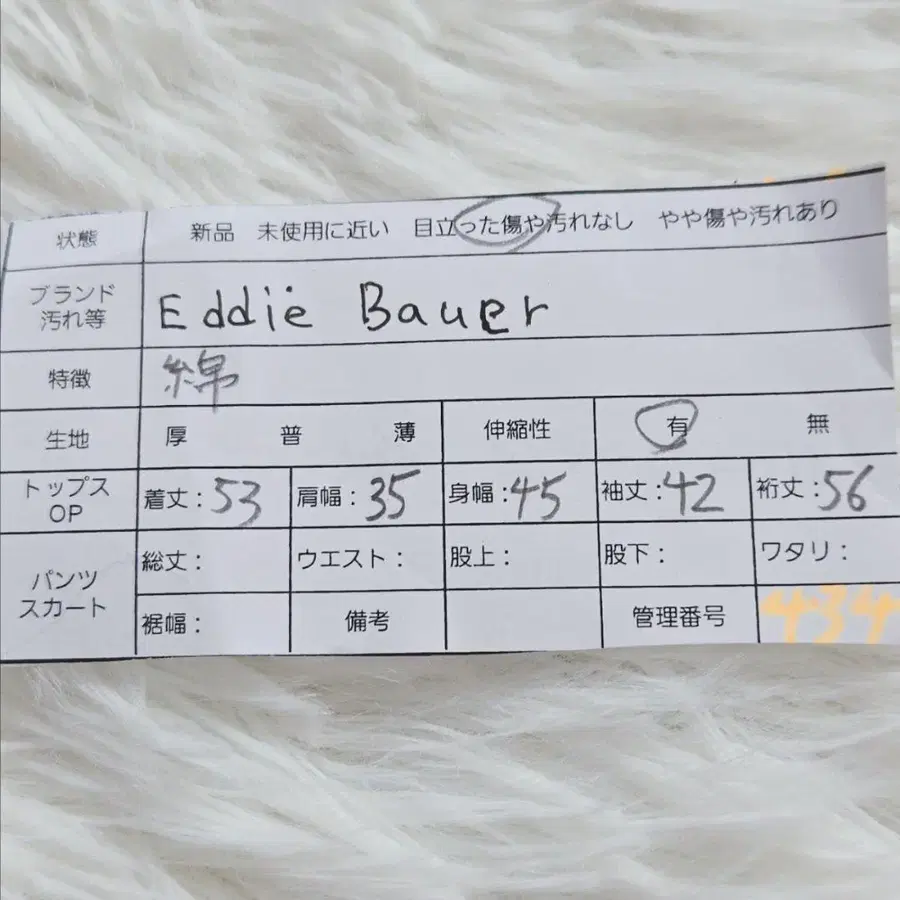 状態 新品 未使用に近い 目立った傷や汚れなし やや傷や汚れあり
ブランド
汚れ等 Eddie Bauer
特徴 綿
生地 厚 普 薄 伸縮性 有 無
トップス
OP 着丈:53 肩幅:35 身幅:45 袖丈:42 裄丈:56
パンツ
スカート 総丈: ウエスト: 股上: 股下: ワタリ:
裾幅: 備考 管理番号 434